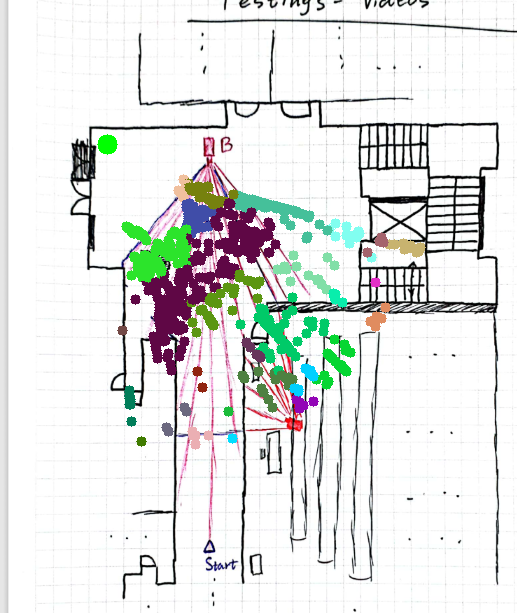 Testings - Videos
B
Start